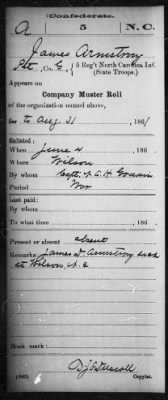 Confederate.
A 5 N.C.
James Armstrong
Pvt, Co. E, 5 Reg't North Carolina Inf.
(State Troops.)
Appears on
Company Muster Roll
of the organization named above,
for to Aug. 31, 1861
Enlisted:
When June 4, 186
Where Wilson
By whom Capt.
Period War
Last paid:
By whom
To what time , 186
Present or absent absent
Remarks James D. Armstrong
at Wilson, N.C.
(642) Copyist.